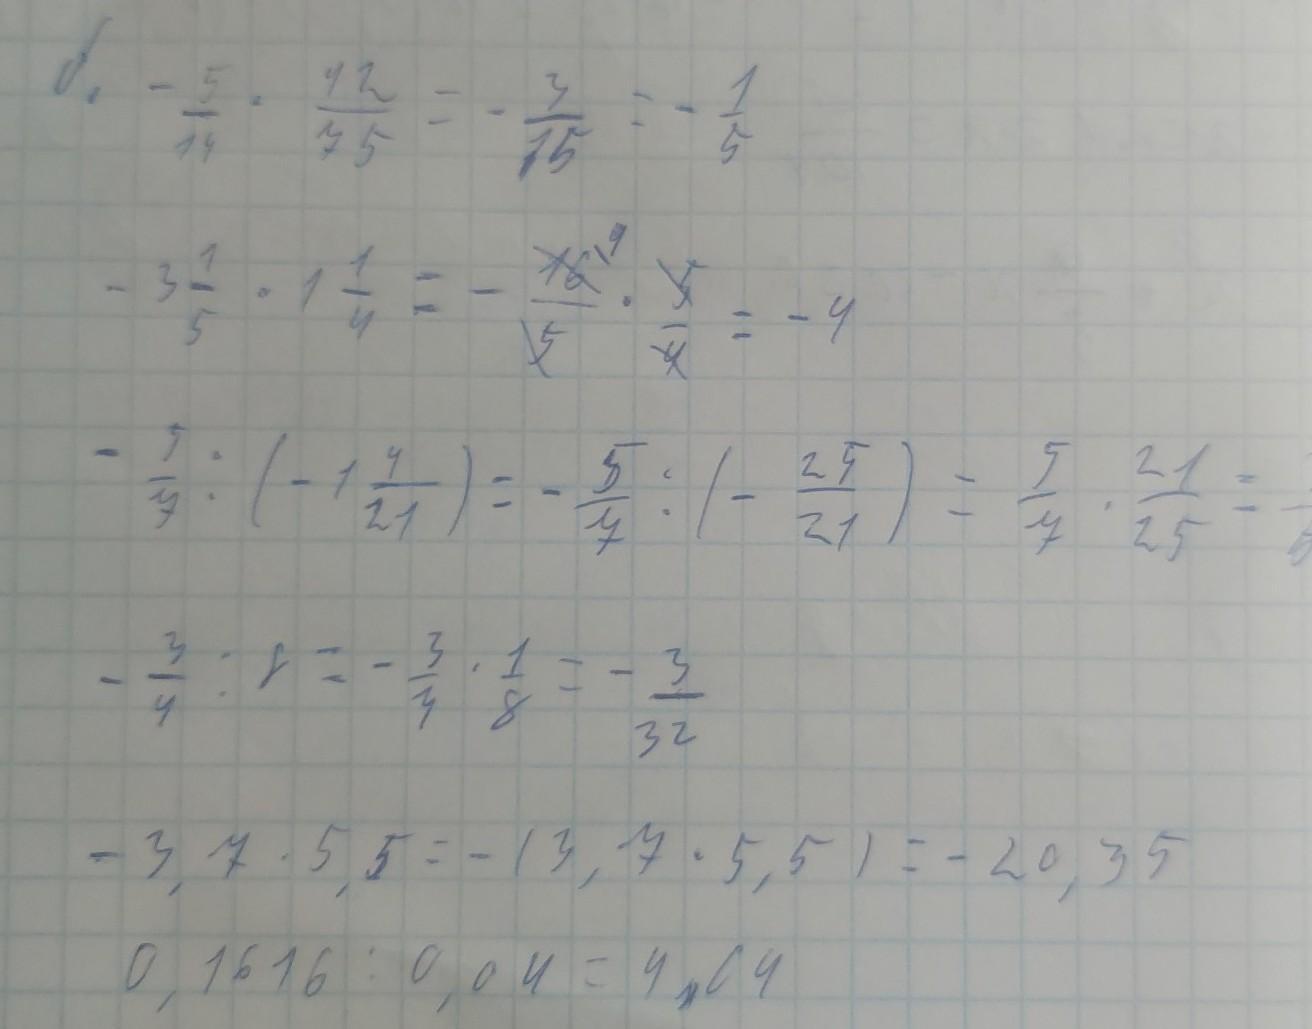 -5/14 · 42/75 = -3/15 = -1/5
-3 1/5 · 1 1/4 = -16 4/5 · 5/4 = -4
-5/7 : (-1 4/21) = -5/7 : (-25/21) = 5/7 · 21/25 =
-3/4 : 8 = -3/4 · 1/8 = -3/32
-3,7 · 5,5 = -(3,7 · 5,5) = -20,35
0,1616 : 0,04 = 4,04